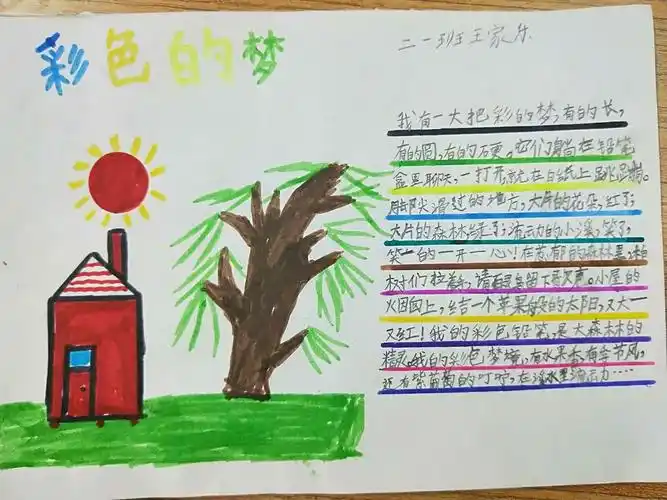 彩色的梦
二一班王家乐
我有一大把彩的梦,有的长,
有的圆,有的硬。它们躺在铅笔
盒里聊天,一打开就在白纸上跳
脚尖滑过的地方,大片的花朵,红了,
大片的森林绿了,流动的小溪,笑了,
笑一的一开一心!在葱郁的森林里,
树们拉着,请留下歌声。小屋的
烟囱上,结一个苹果般的太阳,又大一
又红!我的彩色铅笔,是大森林的
精灵。我的彩色梦境,有水果香,有季节风,
还有紫葡萄的叮咛,在溪水里流动……